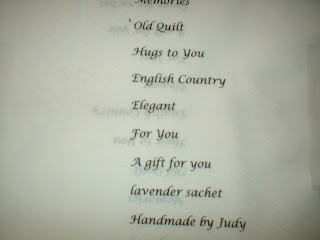 Memories
Old Quilt
Hugs to You
English Country
Elegant
For You
A gift for you
lavender sachet
Handmade by Judy